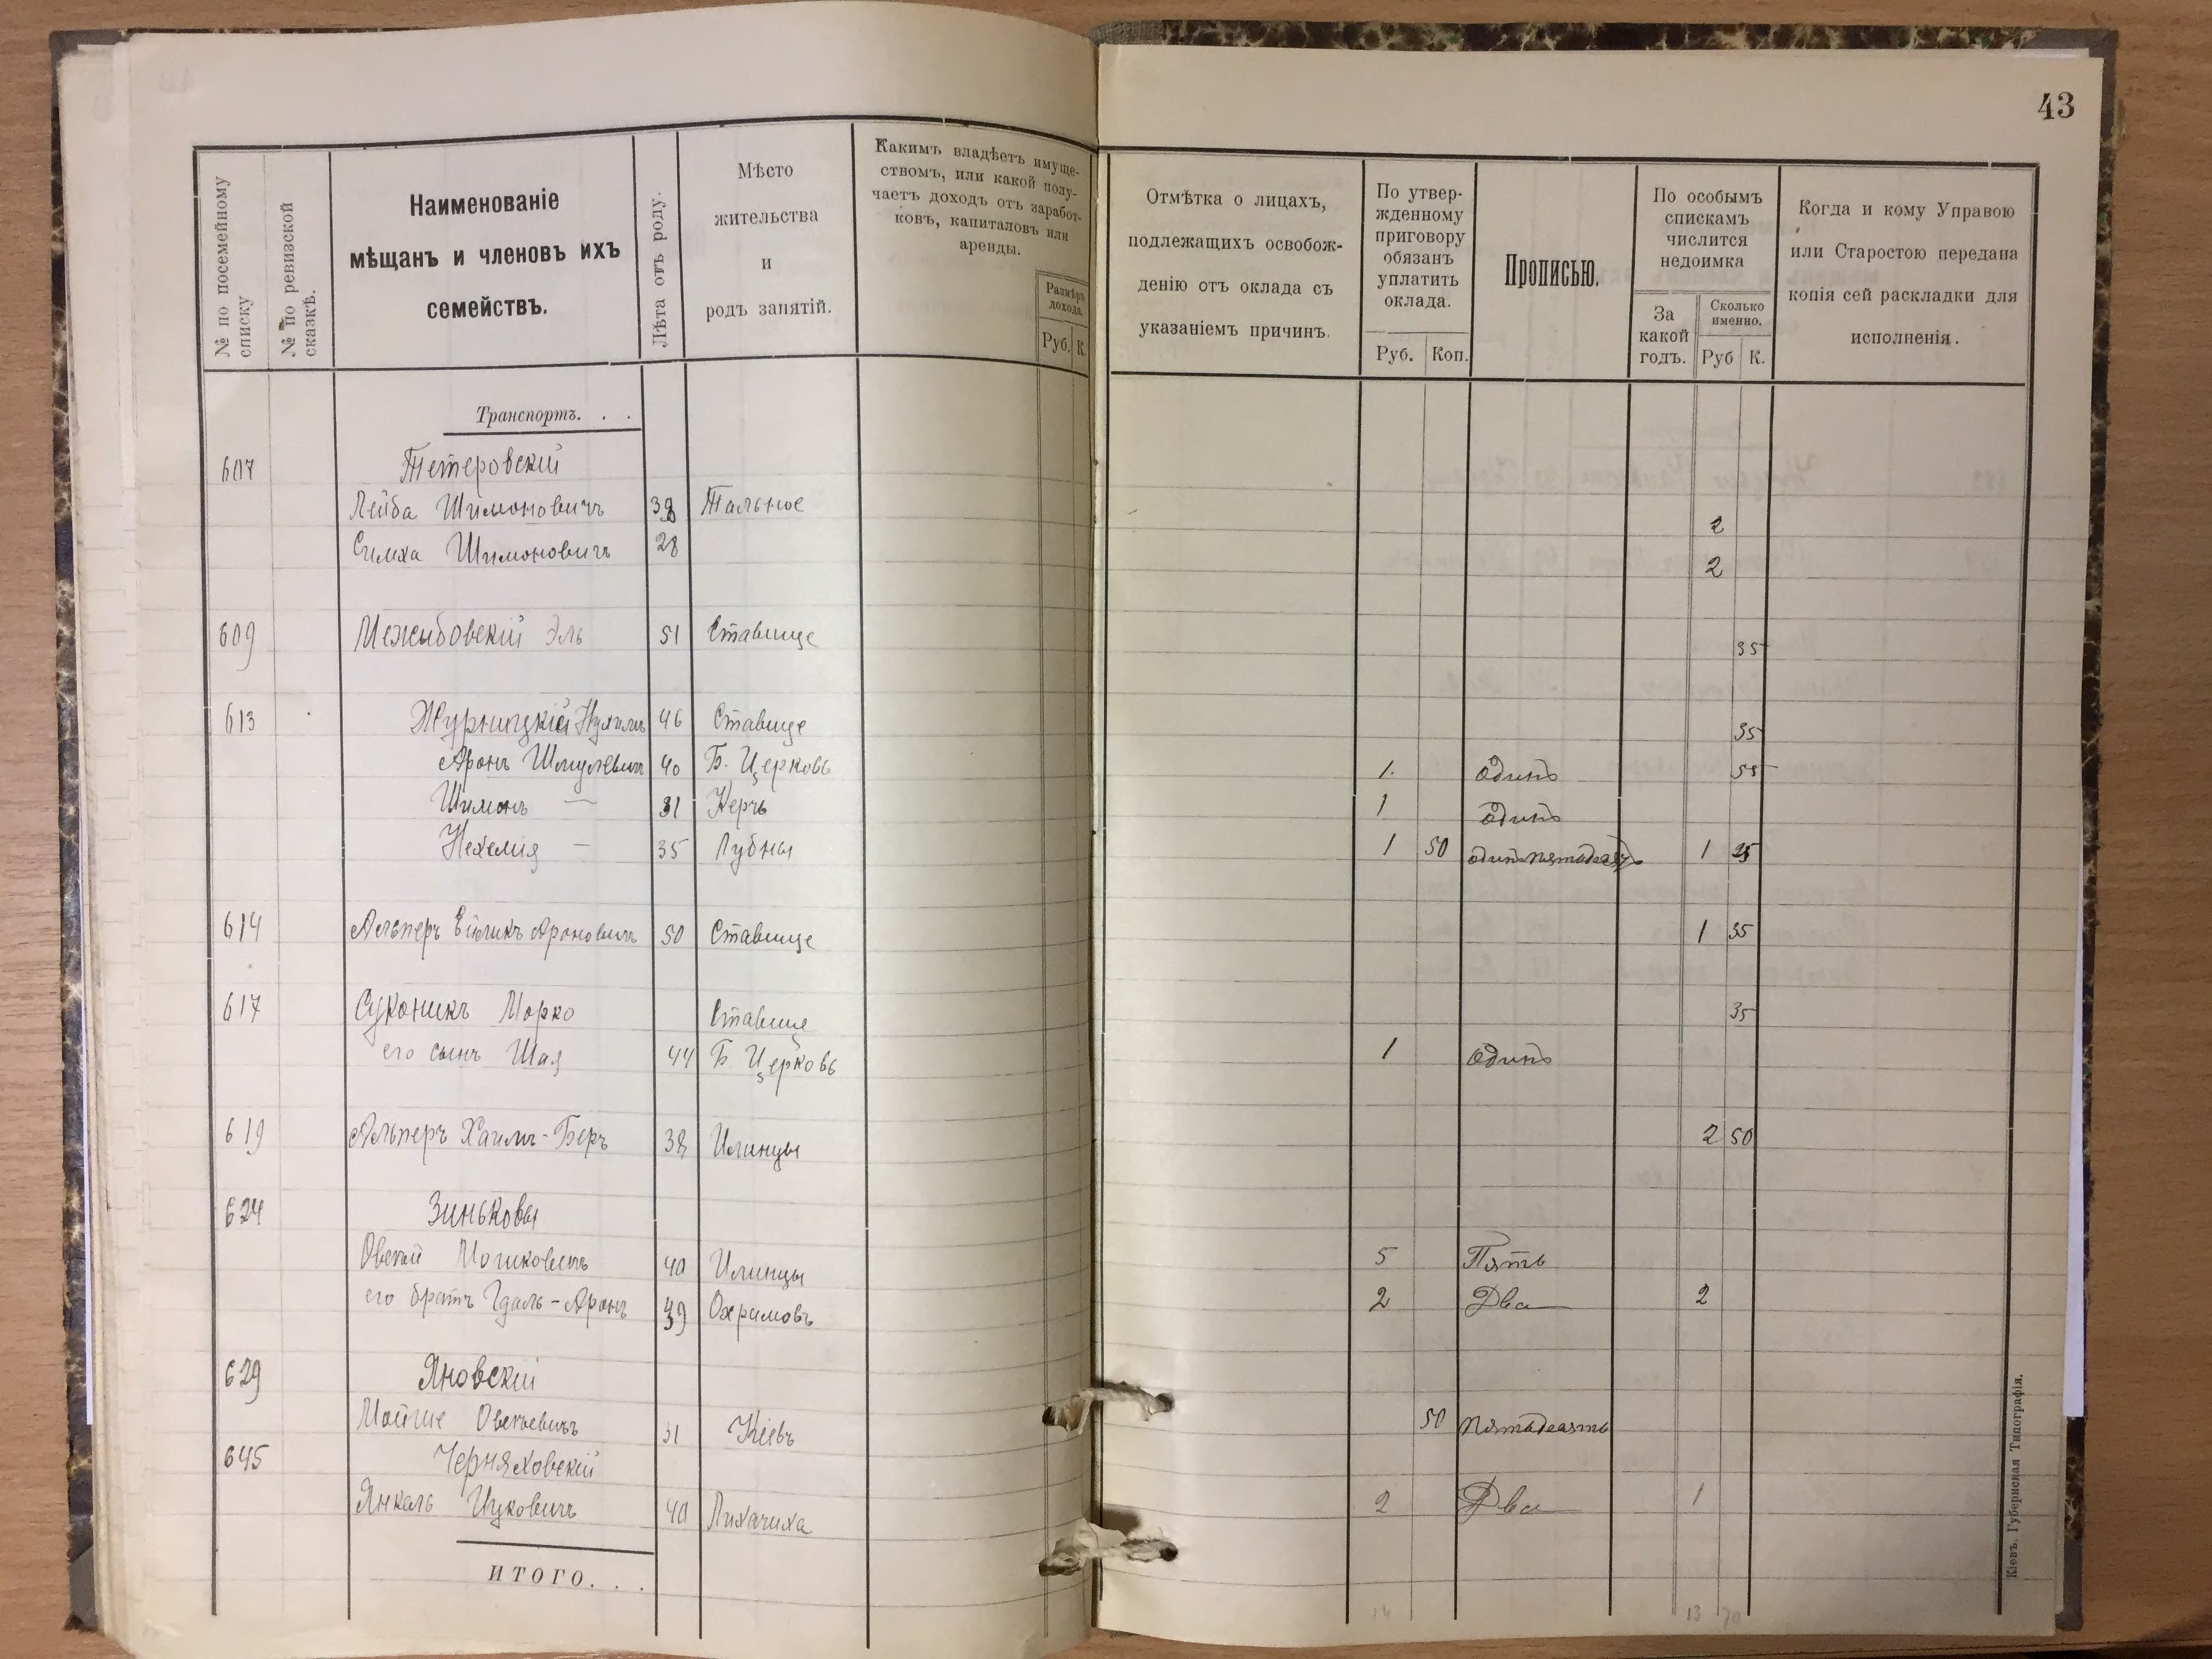 43
№ по посемейному списку
№ по ревизской сказкѣ.
Наименованіе
мѣщанъ и членовъ ихъ
семействъ.
Лѣта отъ роду.
Мѣсто
жительства
и
родъ занятій.
Какимъ владѣетъ имуще-
ствомъ, или какой полу-
чаетъ доходъ отъ заработ-
ковъ, капиталовъ или
аренды.
Размѣръ
дохода.
Руб. К.
Отмѣтка о лицахъ,
подлежащихъ освобож-
денію отъ оклада съ
указаніемъ причинъ.
По утвер-
жденному
приговору
обязанъ
уплатить
оклада.
Руб. Коп.
Прописью.
По особымъ
спискамъ
числится
недоимка
За
какой
годъ.
Сколько
именно.
Руб К.
Когда и кому Управою
или Старостою передана
копія сей раскладки для
исполненія.
Транспортъ. . .
607 Тетеровскій
Лейба Шимоновичъ 38 Тальное 2
Симха Шимоновичъ 28 2
609 Межибовскій Эль 51 Ставище 35
613 Журницкій 46 Ставище 35
Аронъ Шмулевичъ 40 Б. Церковь 1 одинъ 55
Шимонъ — 31 Керчь 1 одинъ
Нехемія — 35 Лубны 1 50 одинъ пятьдесятъ 1 25
614 Альперъ Ароновичъ 50 Ставище 1 35
617 Суконикъ Морко Ставище 35
его сынъ Шая 44 Б. Церковь 1 одинъ
619 Альперъ Хаимъ-Беръ 38 Илинцы 2 50
624 Зиньковы
Овсей Мошковичъ 40 Илинцы 5 Пять
его братъ Гдаль-Аронъ 39 Охримовъ 2 Два 2
629 Яновскій
Мойше Овсеевичъ 31 Кіевъ 50 пятьдесятъ
645 Черняховскій
Янкель Ицковичъ 40 Лихачиха 2 Два 1
ИТОГО. . .
14 13 70
Кіевъ. Губернская Типографія.